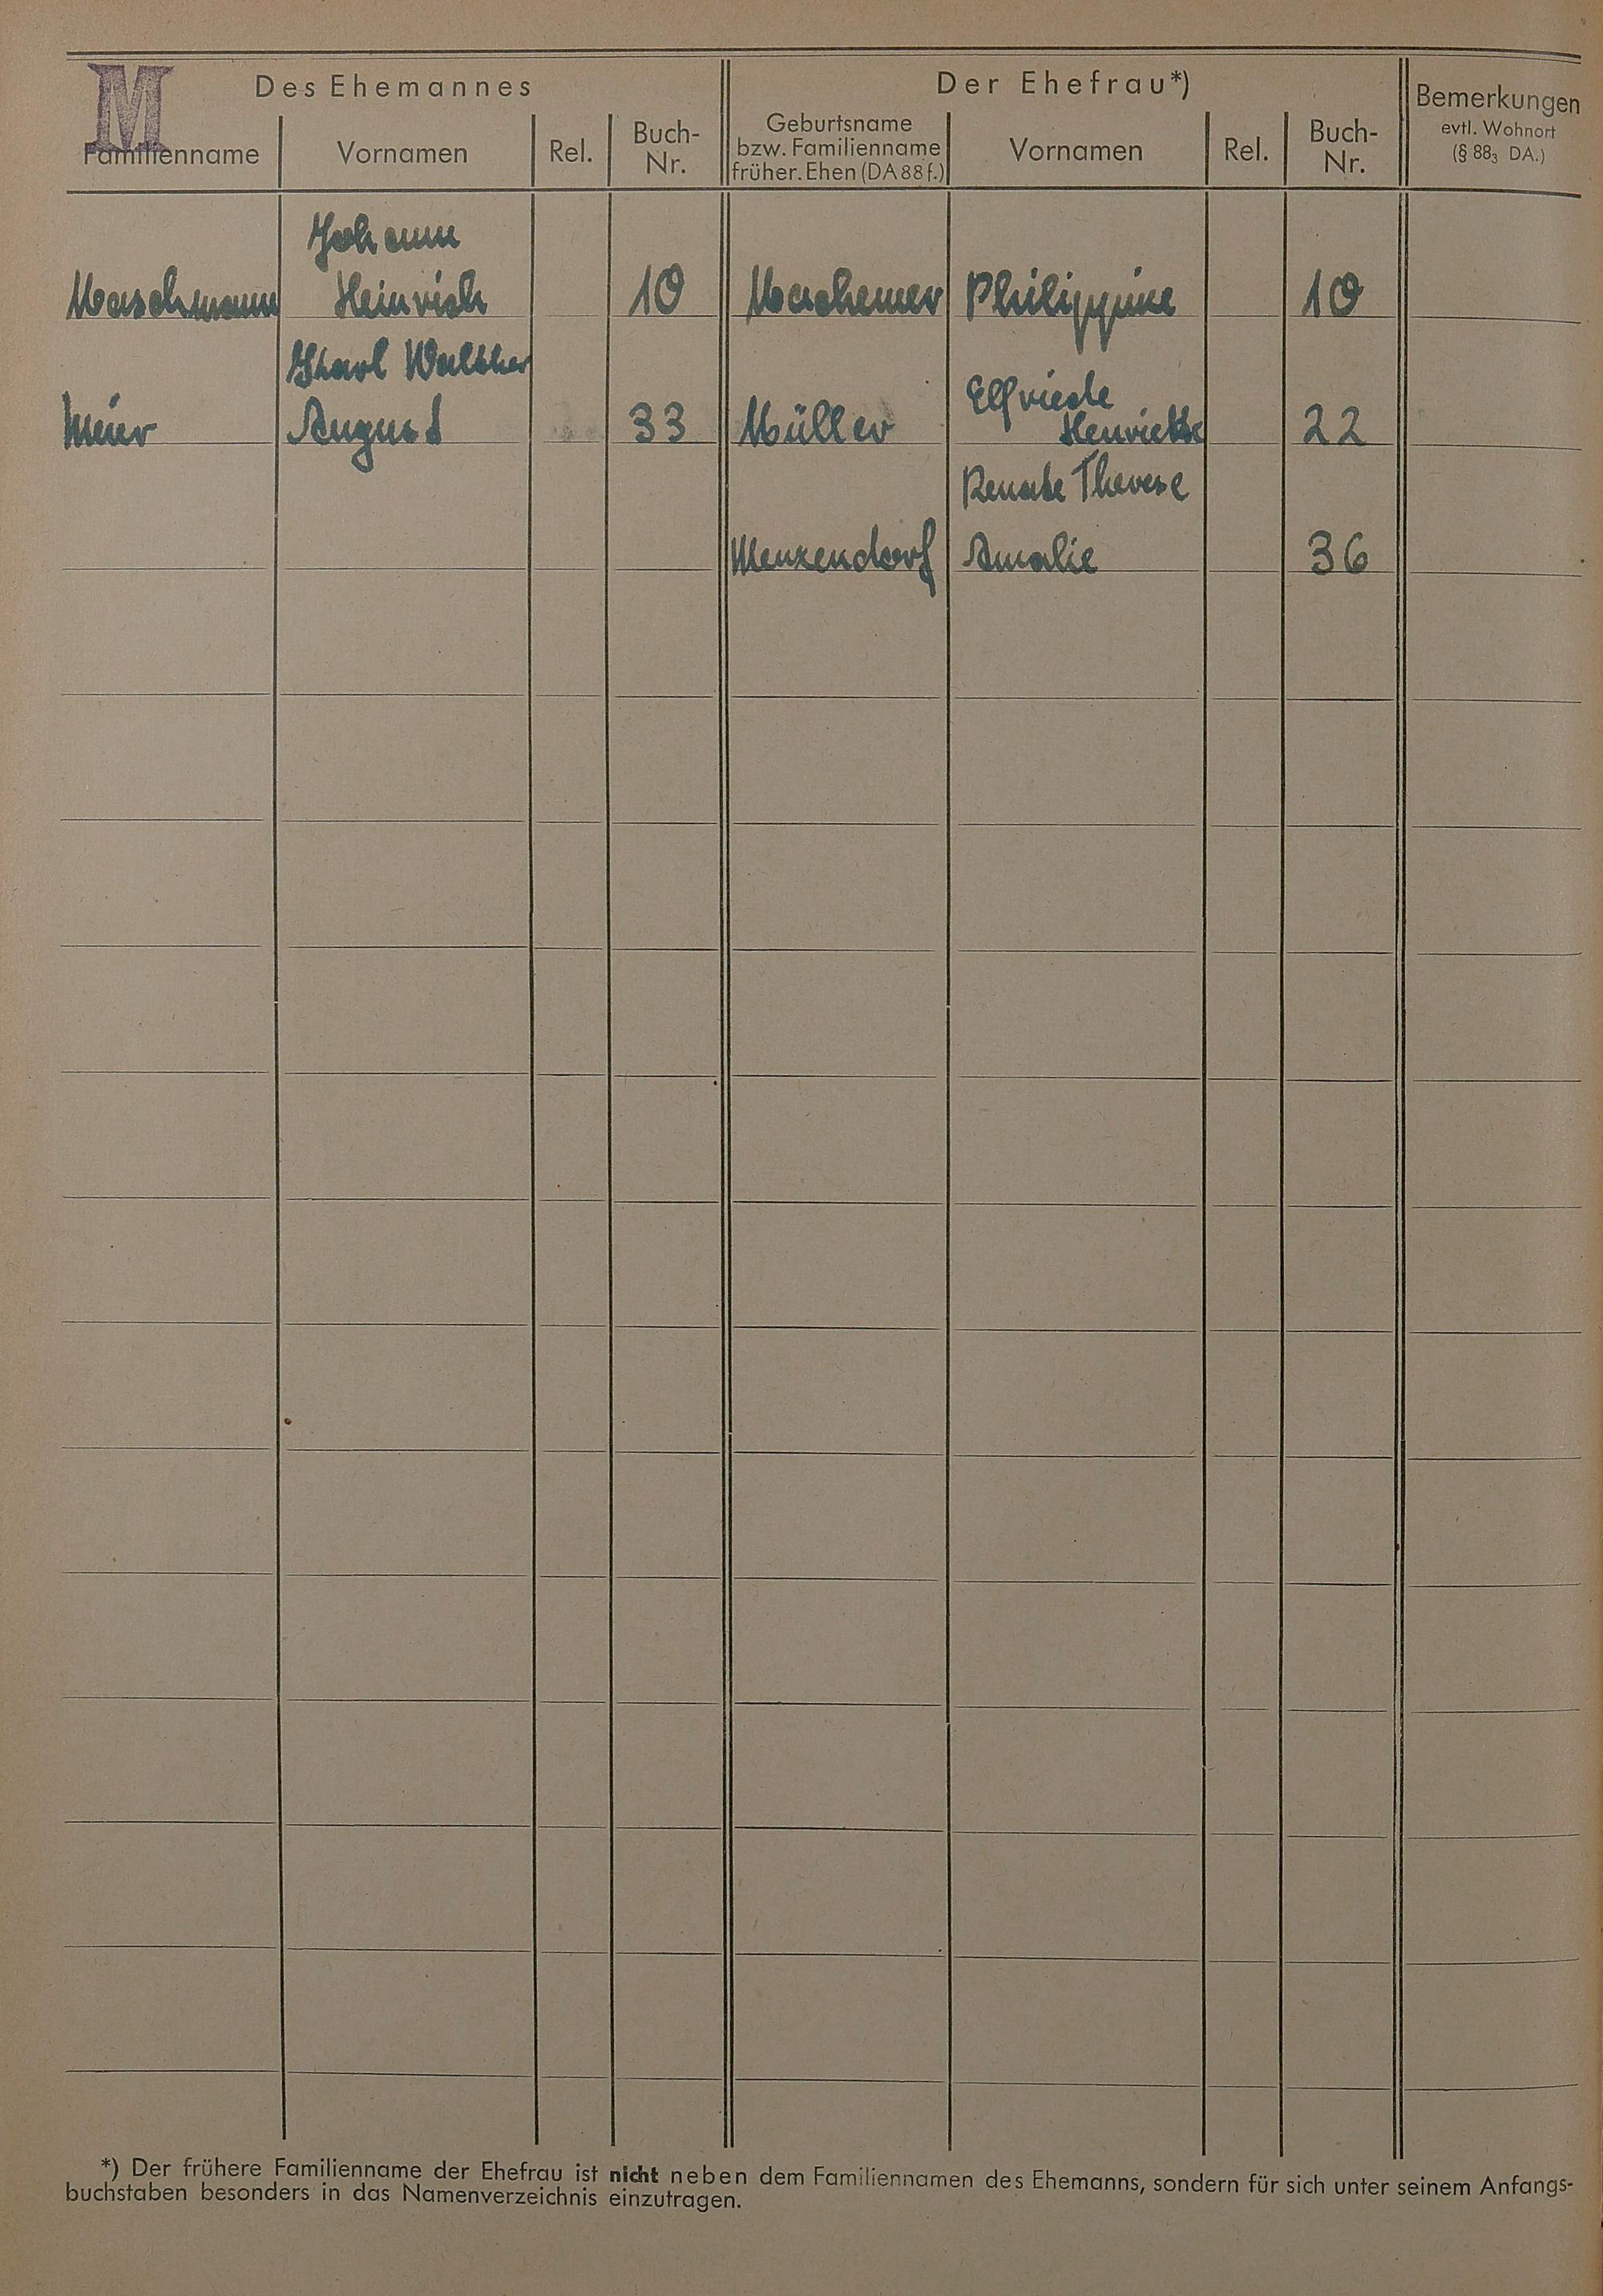 M
Des Ehemannes
Der Ehefrau*)
Bemerkungen
evtl. Wohnort
(§ 88₃ DA.)
Familienname
Vornamen
Rel.
Buch-
Nr.
Geburtsname
bzw. Familienname
früher. Ehen (DA 88 f.)
Vornamen
Rel.
Buch-
Nr.
Johann
Maschmann Heinrich 10 Machemer Philippine 10
Karl Walther
Elfriede
Meier August 33 Müller Henriette 22
Renate Therese
Menzendorf Amalie 36
*) Der frühere Familienname der Ehefrau ist nicht neben dem Familiennamen des Ehemanns, sondern für sich unter seinem Anfangs-
buchstaben besonders in das Namenverzeichnis einzutragen.